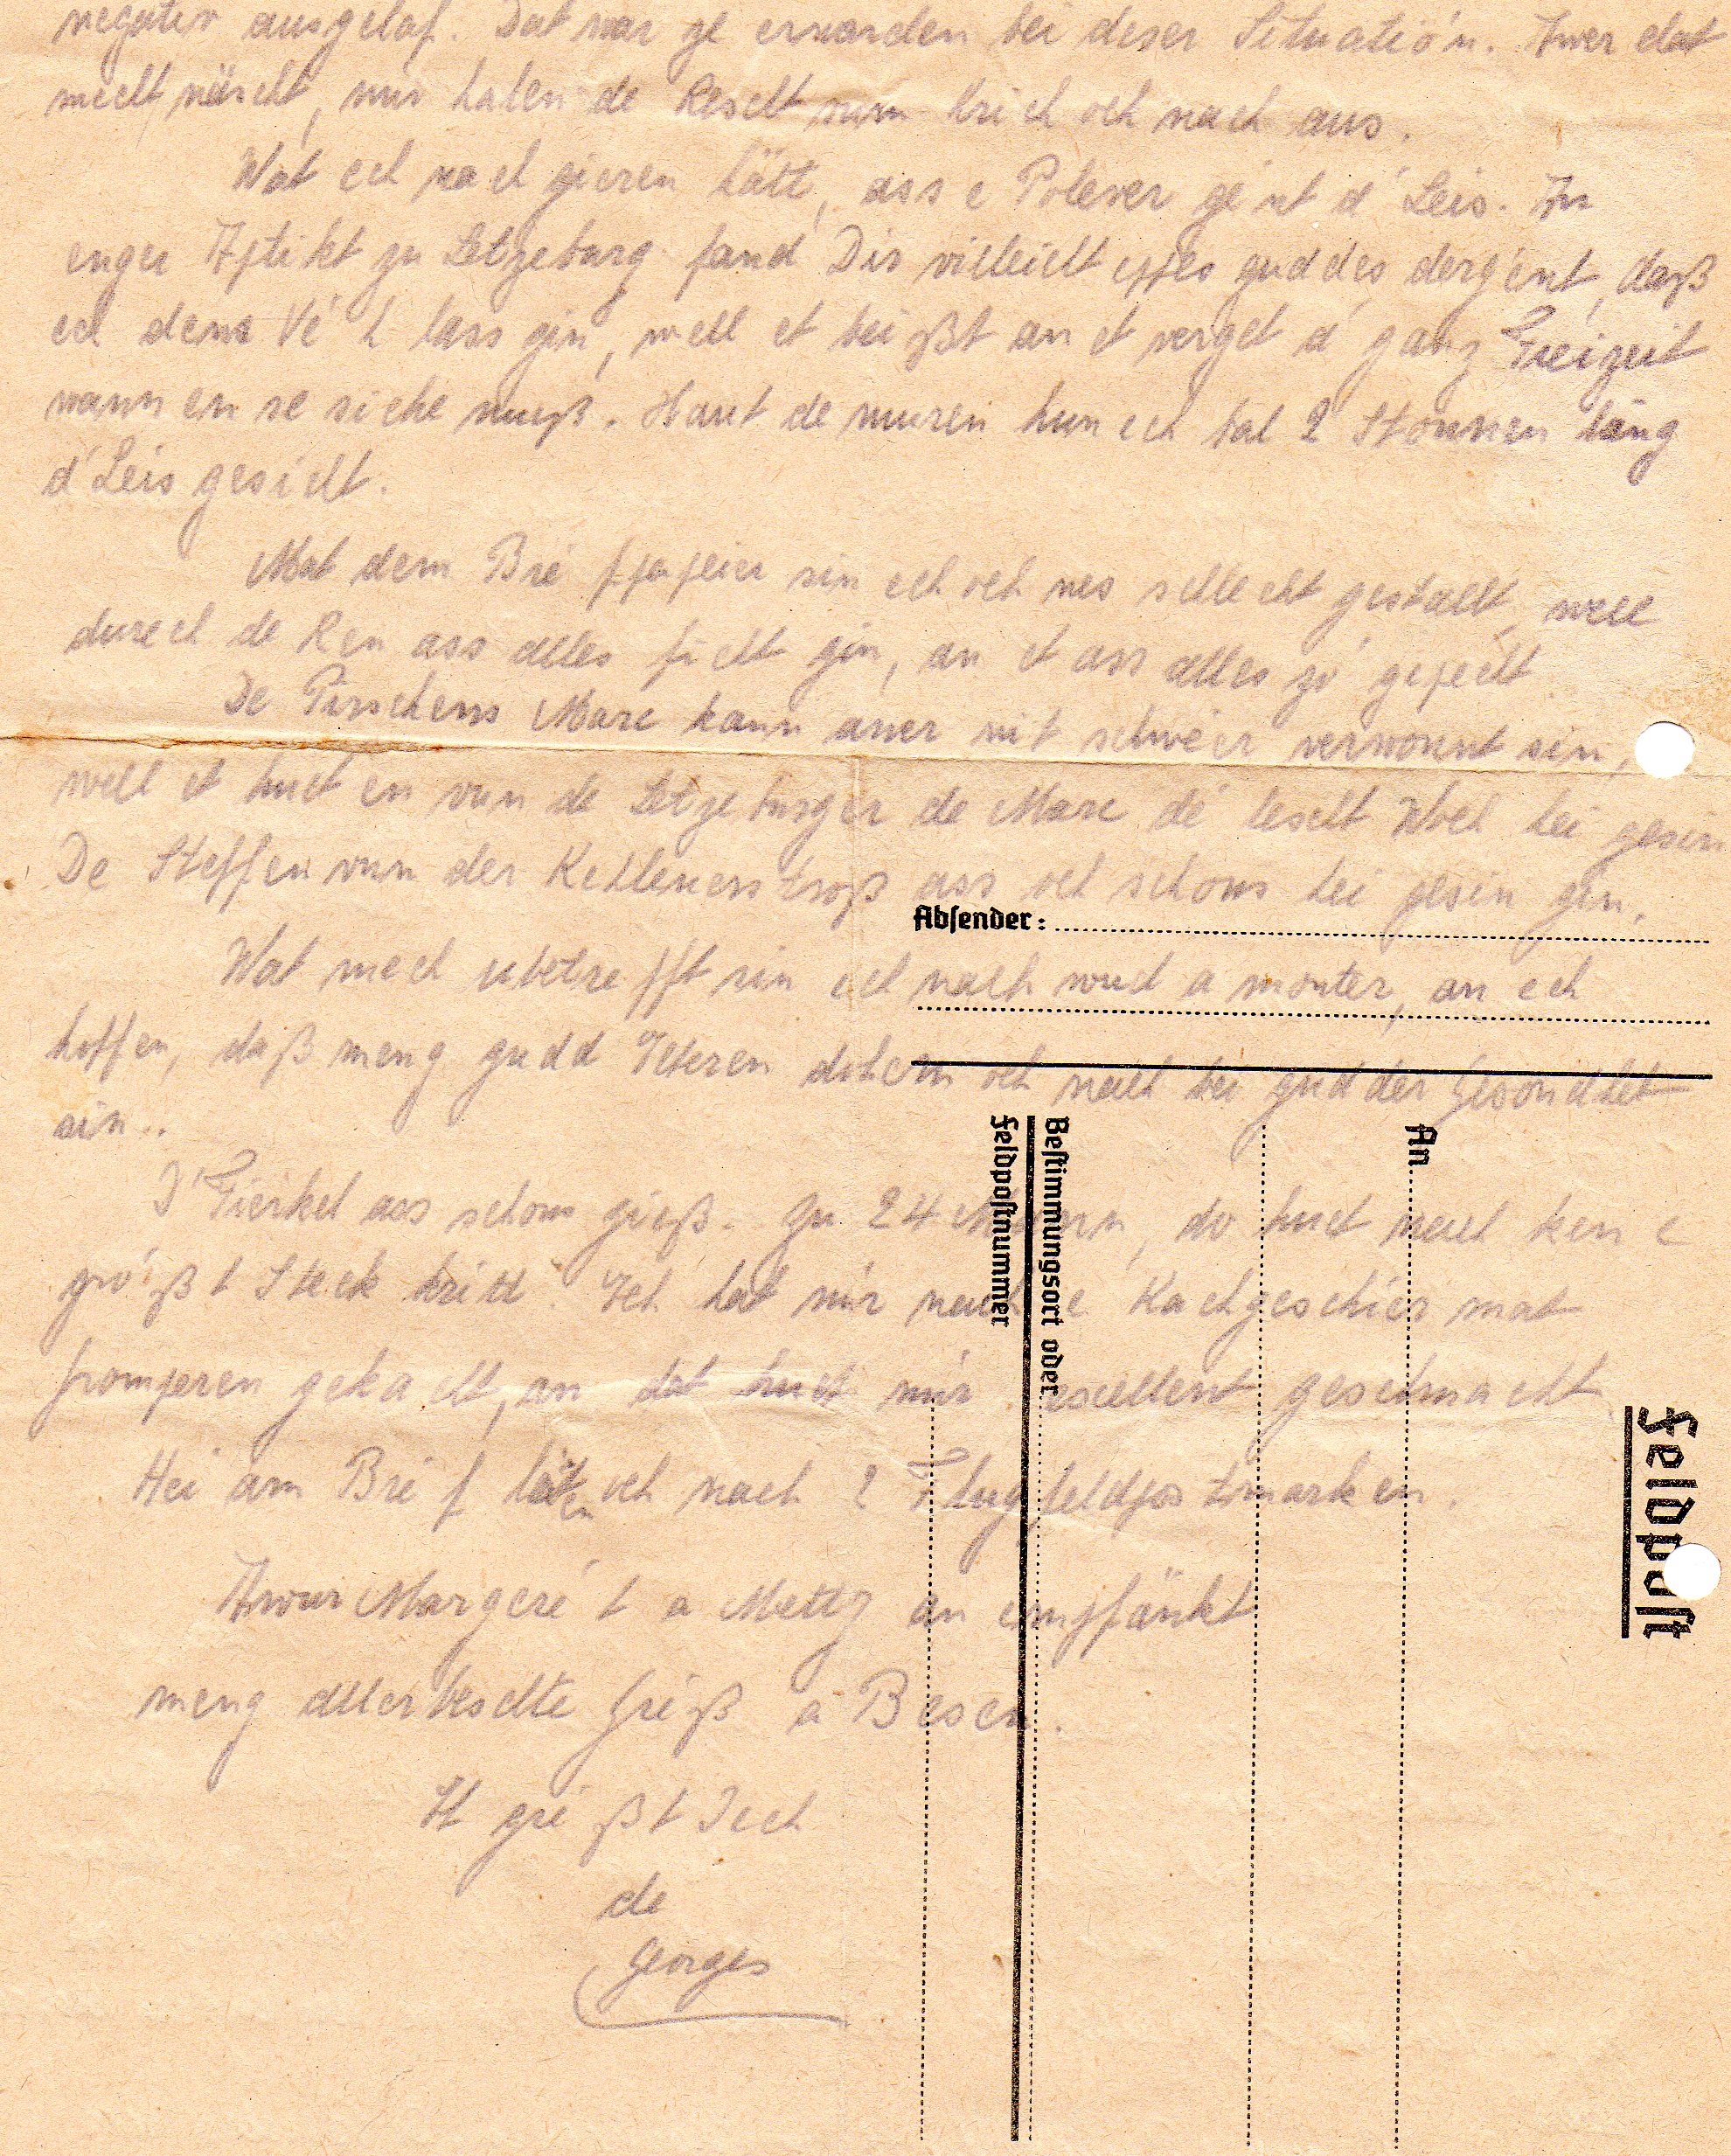 negativ ausgelaf. Dat war ze erwarden bei deser Situatió'n. Awer dat
mecht näischt, mir halen de Rescht vum krich och nach aus.
Wat ech nach gieren hätt, ass e Polever gé'nt d'Leis. An
enger Aptikt zu Letzeburg fand Dir villeicht eppes guddes dergént, daß
ech dem Vé'h lass gin, well et beißt an et verget d'ganz Freizeit
wann en se siche muß. Haut de muren hun ech bal 2 Stonnen lang
d'Leis gesicht.
Mat dem Bréfpapeier sin ech och nes schlecht gestallt, well
durech de Ren ass alles ficht gin, an et ass alles zó' gepecht.
De Pirschens Marc kann awer nit schwéier verwonnt sin,
well et huet en vun de Letzeburger de Marc dé' lescht Woch hei gesin
De Steffen vun der Kehlenerstroß ass och schons hei gesin gin.
Absender:
Wat mech ubetrefft sin ech nach wuel a monter, an ech
hoffen, daß meng gudd Elteren doheem och nach bei gudder Gesondhet
sin..
D'Fierkel ass schons giess. Zu 24 Mann, do huet nach ken e
gró'ßt Steck kritt. Ech hat mir nach e Kachgeschier mat
Gromperen gekacht, an dat huet mir excellent geschmacht.
Hei am Bréf leien och nach 2 Flugfeldpostmarken.
Awuer Margeré't a Metty an empfänkt
meng allerbeschte Gréß a Besen.
Et gré'ßt Iech
de
Georges
An
Bestimmungsort oder
Feldpostnummer
Feldpost